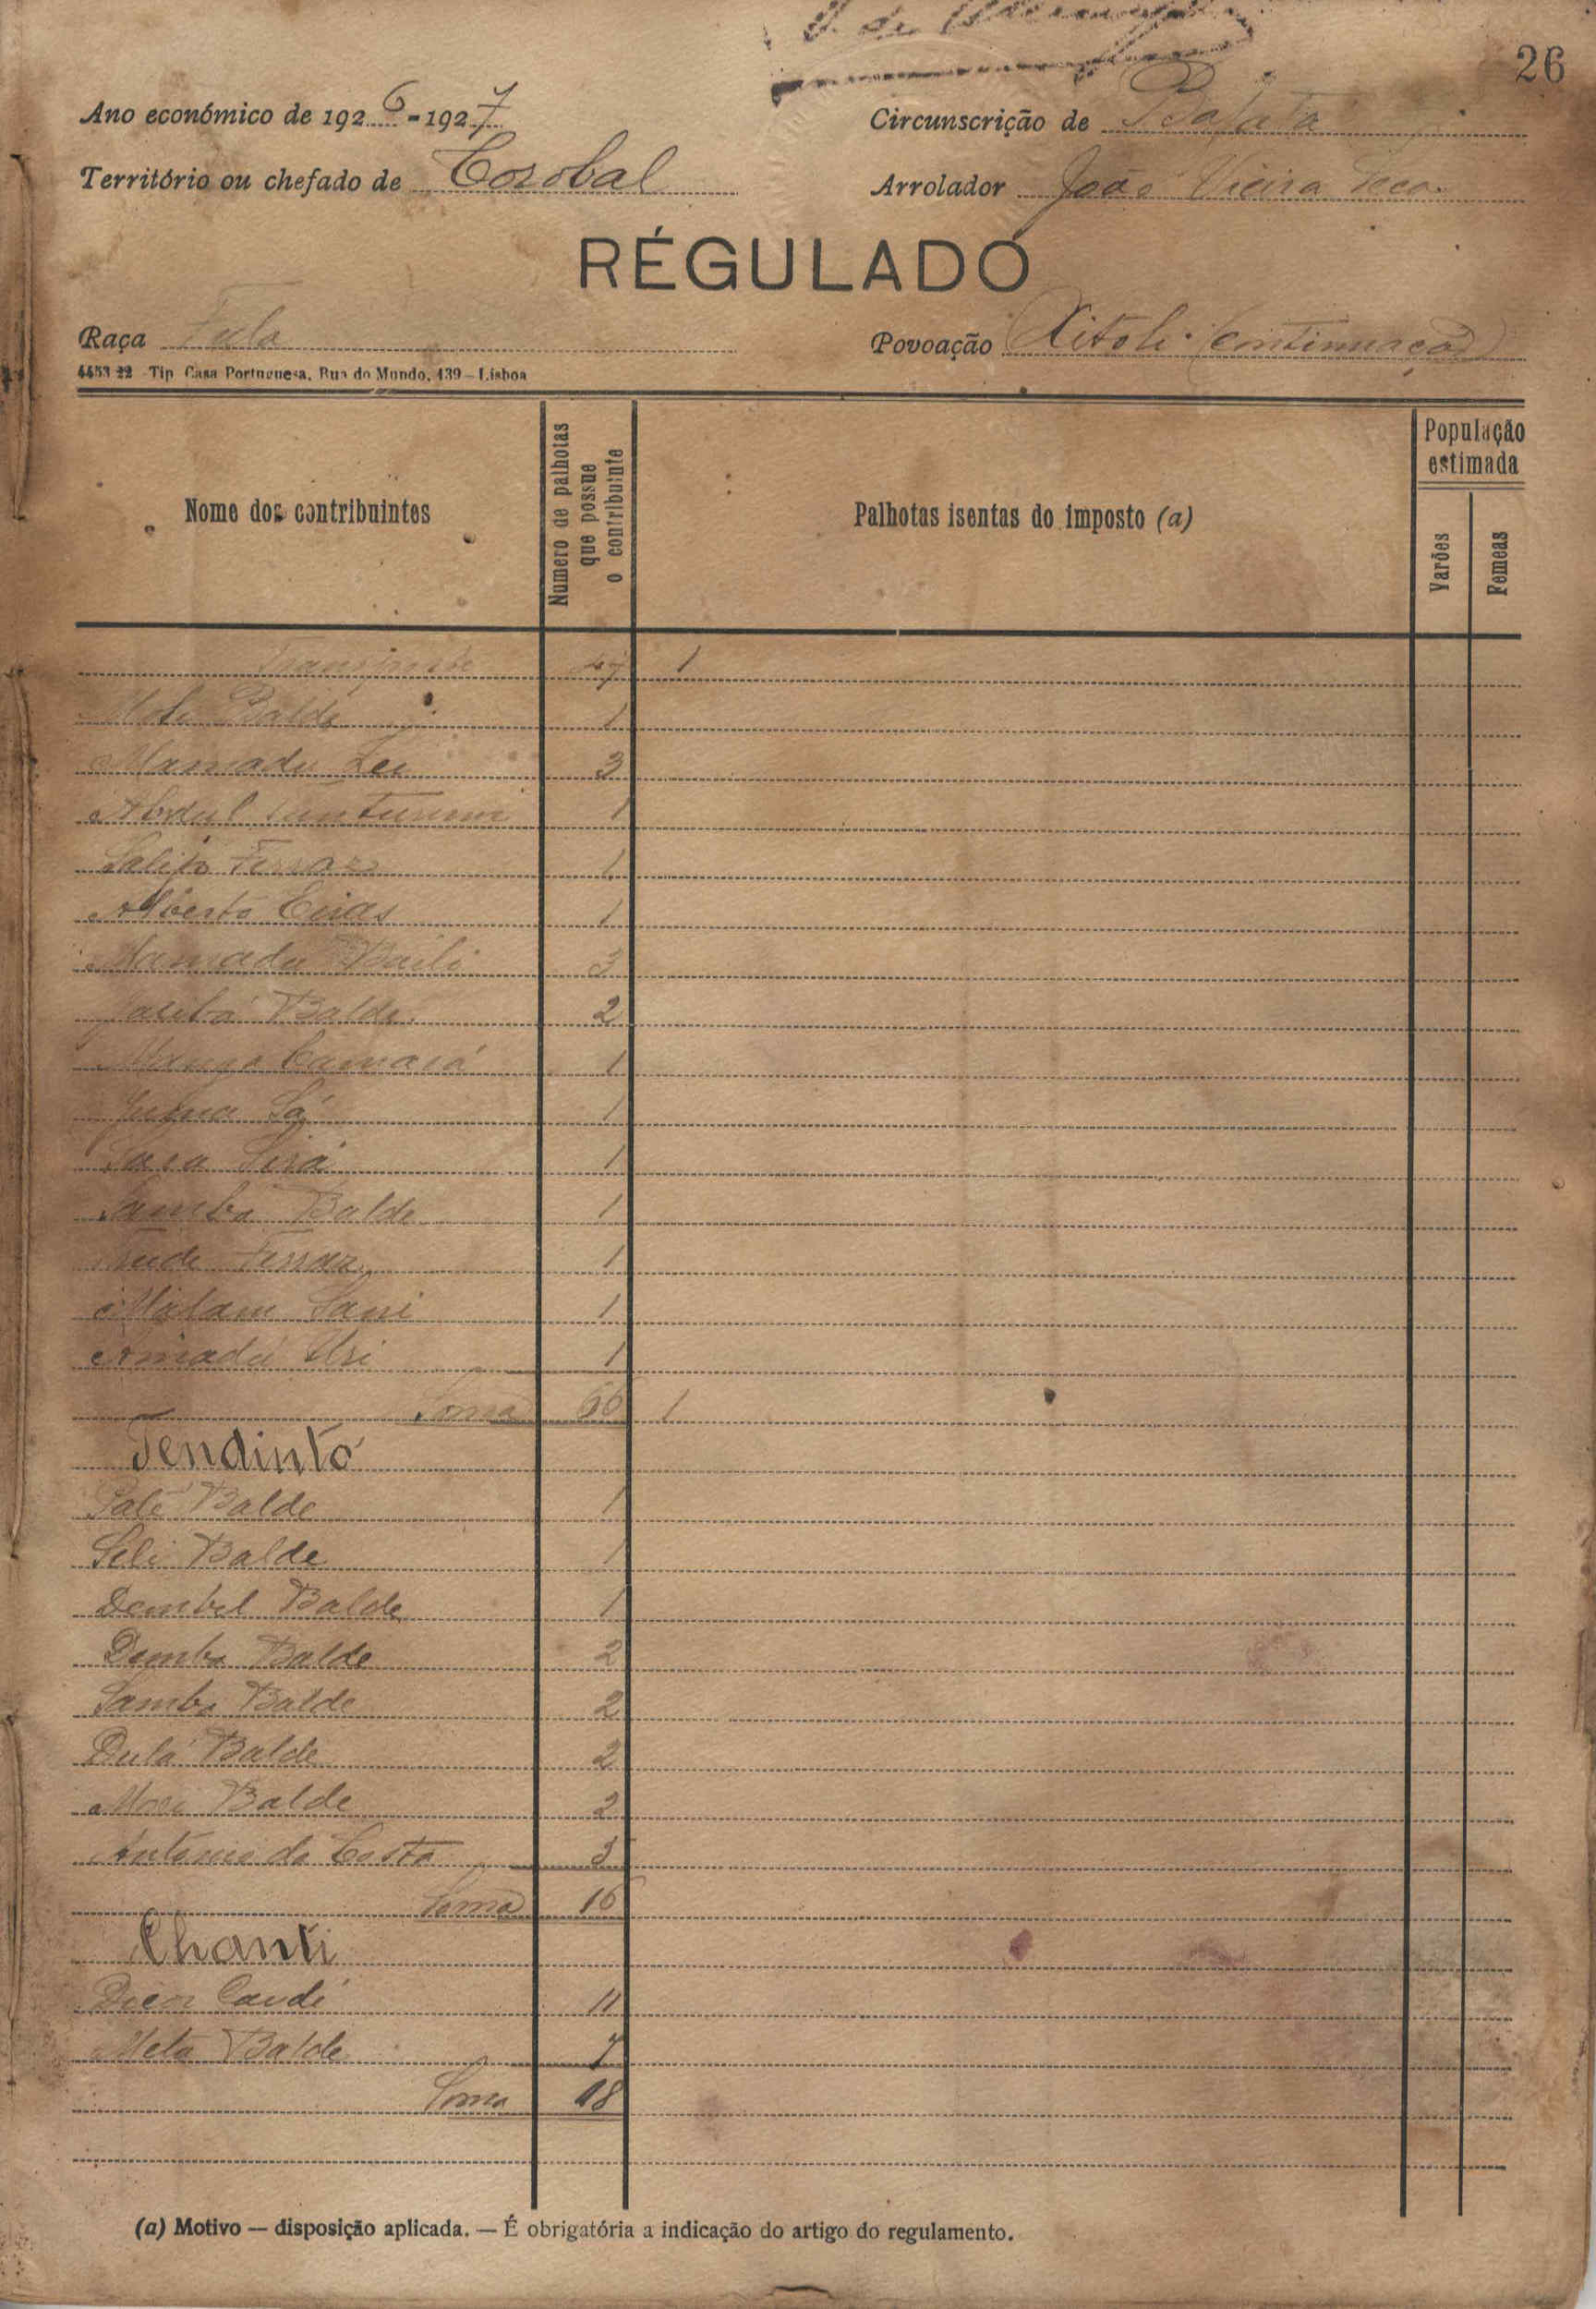 26
Ano económico de 1926-1927
Circunscrição de Bafatá
Território ou chefado de Corobal
Arrolador João Vieira
RÉGULADO
Raça Fula
Povoação Xitoli (continuação)
4453 22 Tip Casa Portuguesa, Rua do Mundo, 139 - Lisboa
Nome dos contribuintes
Numero de palhotas que possue o contribuinte
Palhotas isentas do imposto (a)
População estimada
Varões
Femeas
Transporte 47 1
Baldé 1
Mamadu Lei 3
Abdul 1
Ferraz 1
Alberto 1
Mamadu Baili 3
Balde 2
Camará 1
Sá 1
1
Samba Balde 1
Ferraz 1
Malam Sani 1
Amadú Uri 1
Soma 66 1
Tendintó
Balde 1
Seli Balde 1
Dembel Balde 1
Demba Balde 2
Samba Balde 2
Dulá Balde 2
Mori Balde 2
António da Costa 5
Soma 16
Chanti
Candé 11
Meta Balde 7
Soma 18
(a) Motivo — disposição aplicada. — É obrigatória a indicação do artigo do regulamento.